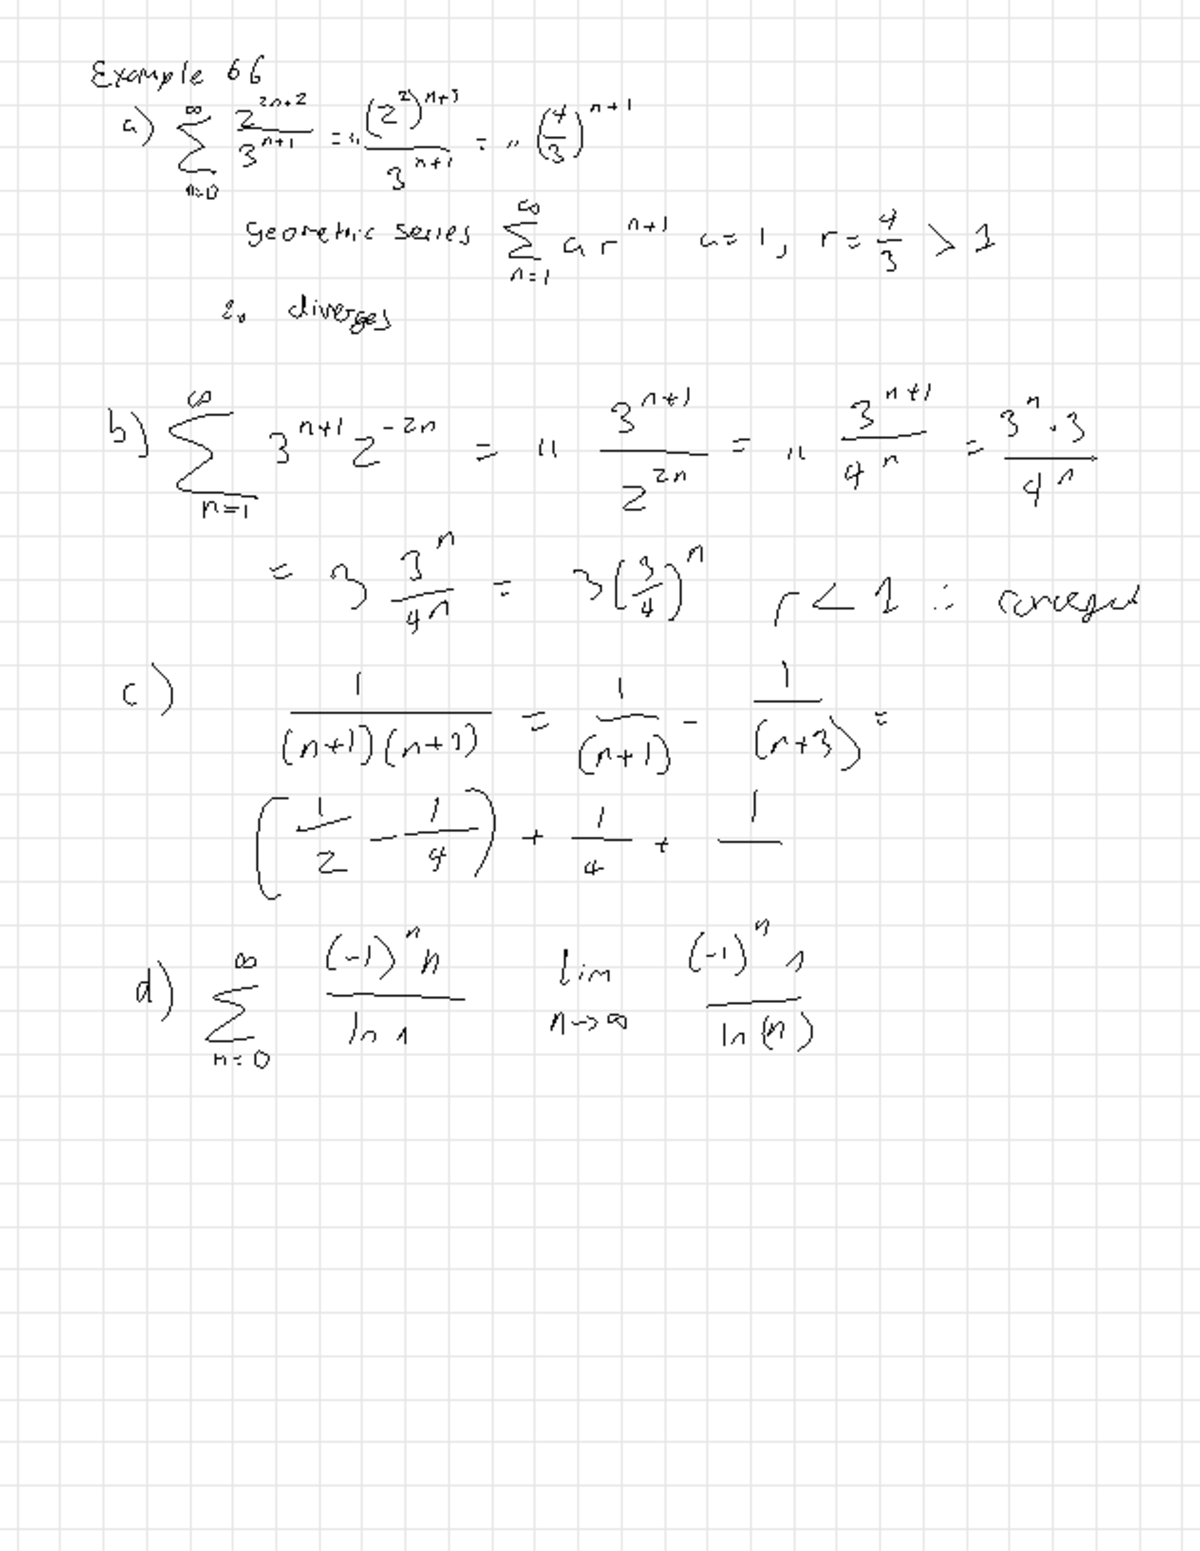 Example 66
a) ∑_{n=0}^{∞} 2^{2n+2}/3^{n+1} = " (2^2)^{n+1}/3^{n+1} = " (4/3)^{n+1}
geometric series ∑_{n=1}^{∞} a r^{n+1} a = 1, r = 4/3 > 1
diverges
b) ∑_{n=1}^{∞} 3^{n+1} 2^{-2n} = " 3^{n+1}/2^{2n} = " 3^{n+1}/4^n = 3^n · 3/4^n
= 3 3^n/4^n = 3(3/4)^n r < 1 ∴
c) 1/(n+1)(n+3) = 1/(n+1) - 1/(n+3) =
(1/2 - 1/4) + 1/4 + 1/
d) ∑_{n=0}^{∞} (-1)^n n/ln n lim_{n→∞} (-1)^n n/ln(n)